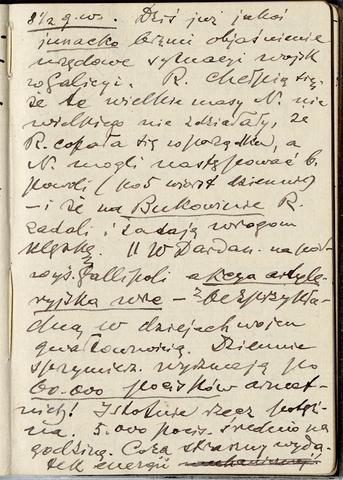 8½ g. w. Dziś już jakoś
junacko brzmi objaśnienie
urzędowe sytuacji wojsk
w Galicyi. R. chełpią się,
że te wielkie masy N. nic
wielkiego nie zdziałały, że
R. cofała się w porządku, a
N. mogli następować b.
powoli (po 5 wiorst dziennie)
— i że na Bukowinie R.
zadali i zadają wrogom
klęskę. W Dardan. na pół-
wys. Gallipoli akcya artyle-
ryjska wre — z bezprzykła-
dną w dziejach wojen
gwałtownością. Dziennie
sprzymierz. wyrzucają po
60.000 pocisków armat-
nich! Istotnie rzecz potęż-
na. 5.000 pocis. średnio na
godzinę. Coża straszny wyda-
tek energii